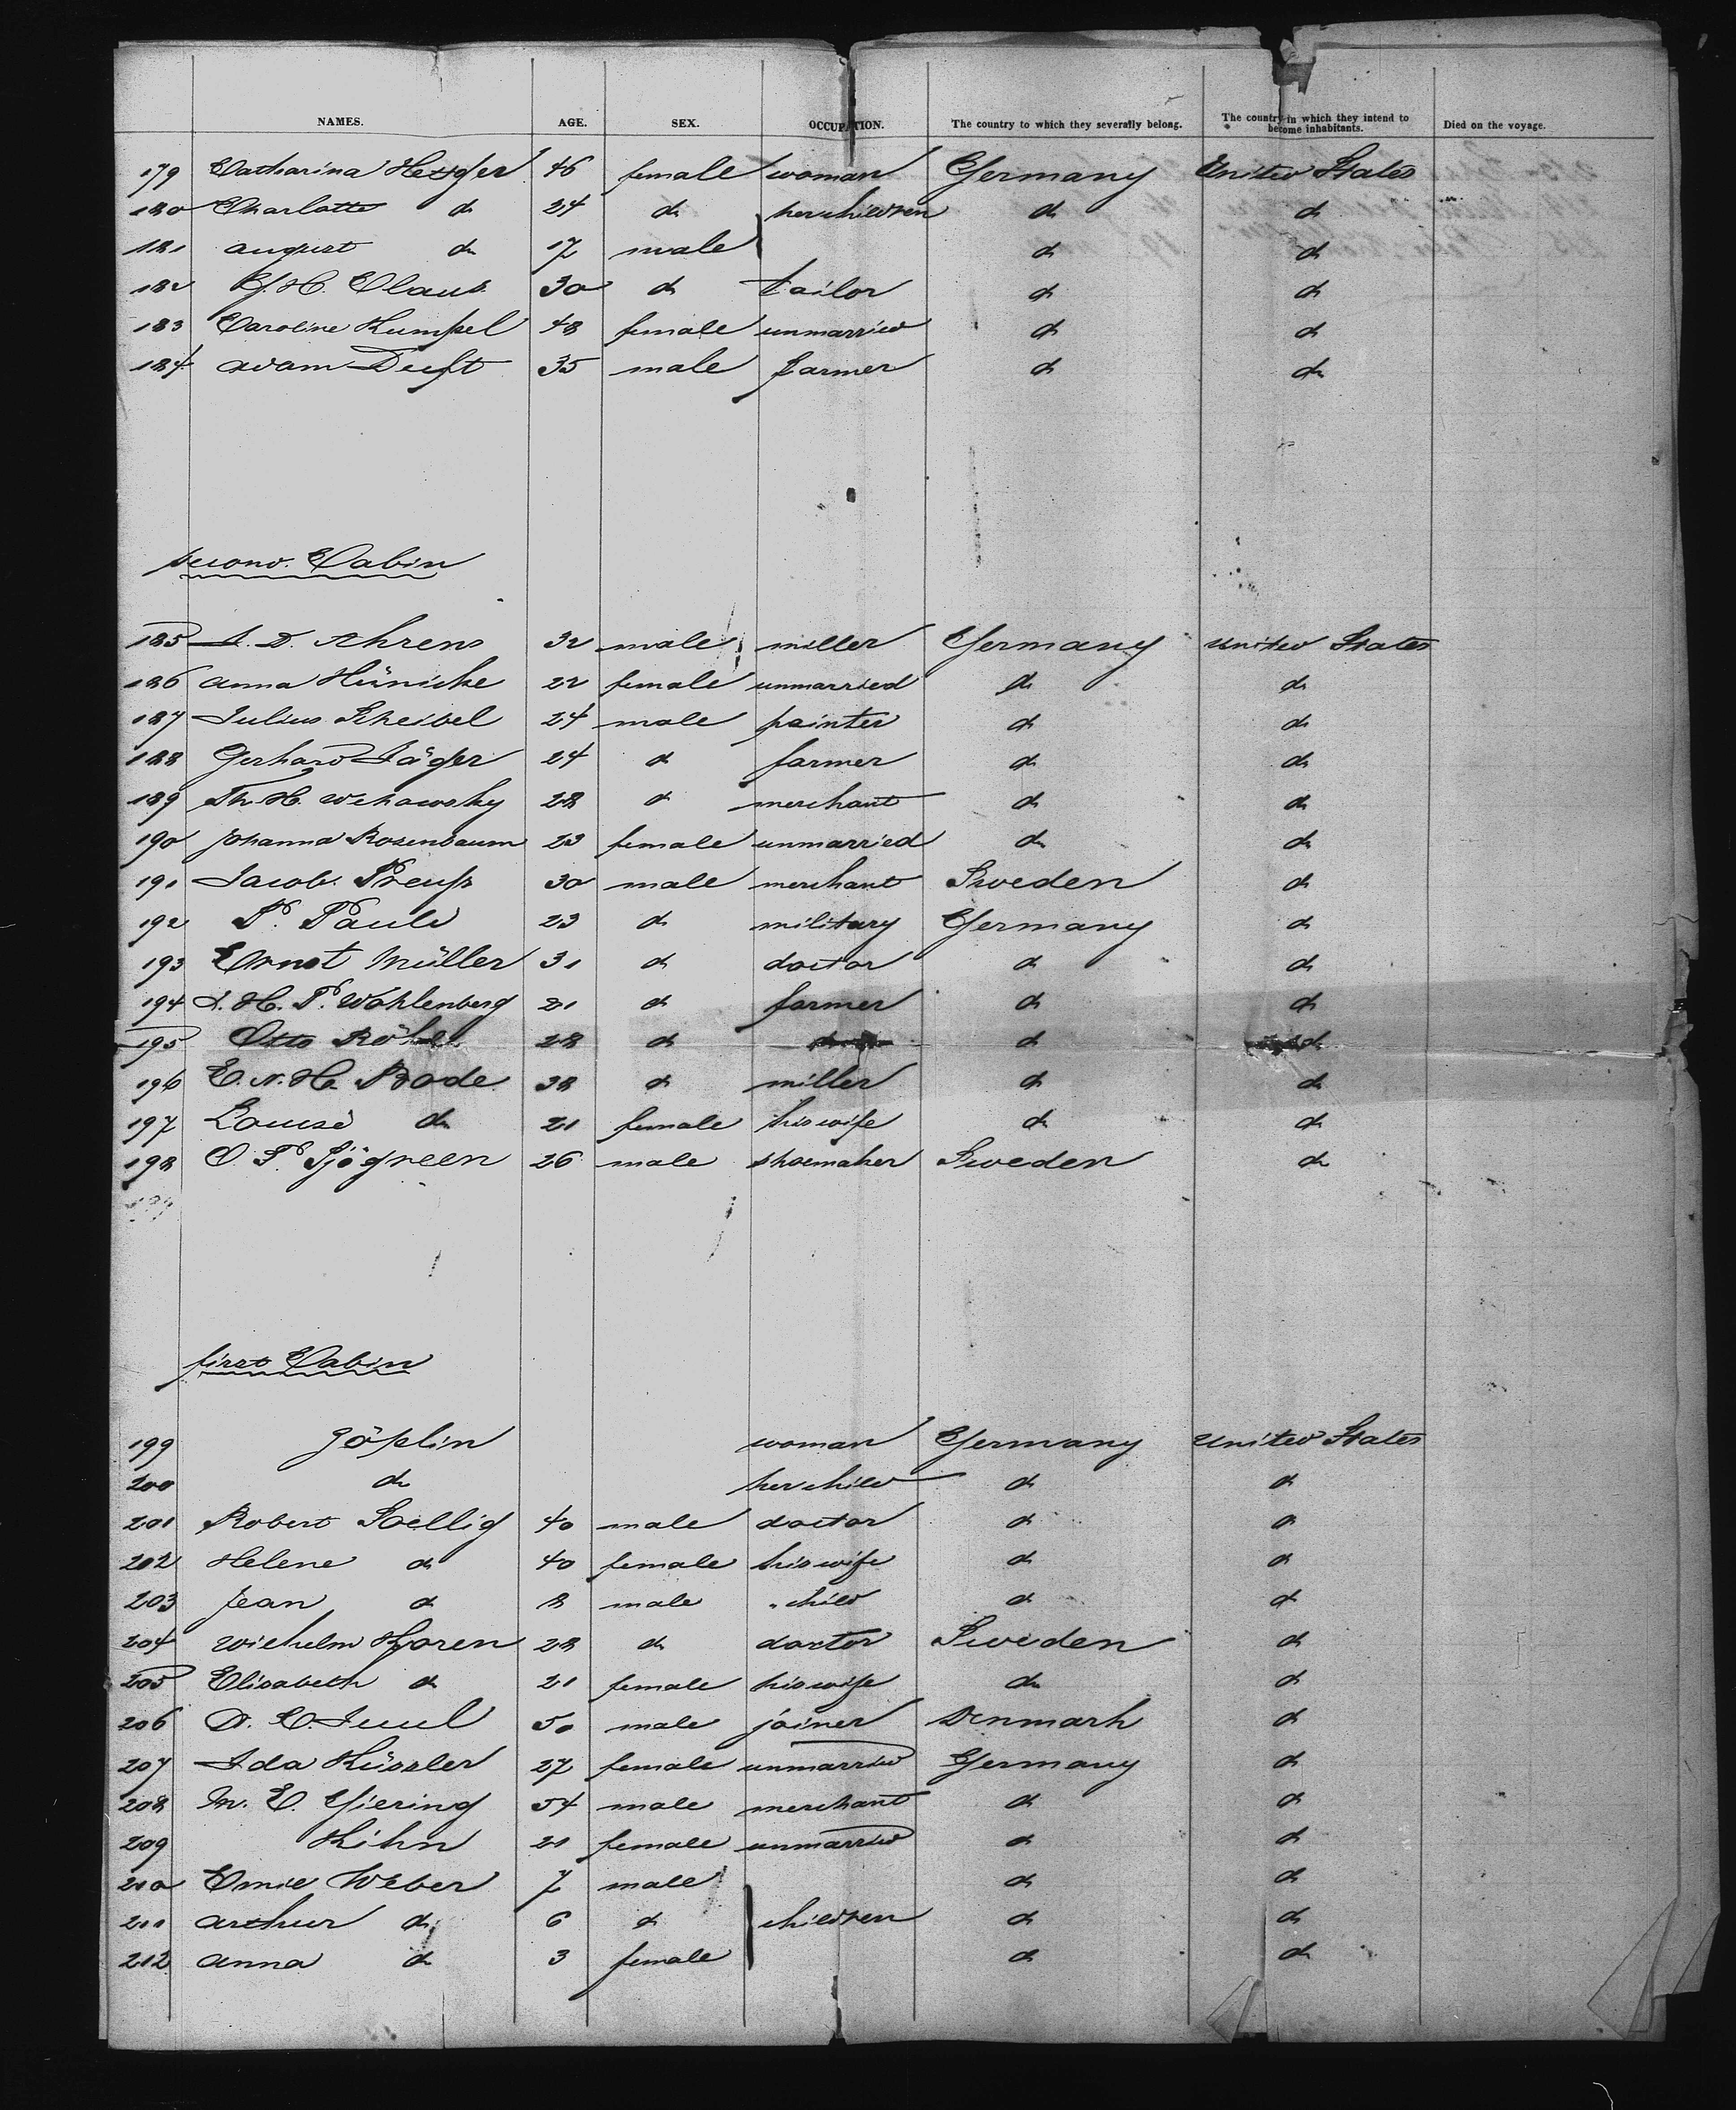 NAMES. AGE. SEX. OCCUPATION. The country to which they severally belong. The country in which they intend to become inhabitants. Died on the voyage.
179 Catharina 46 female woman Germany United States
180 Charlotte do 24 do her children do do
181 august do 17 male do do
182 G. H. Claus 30 do tailor do do
183 Caroline Kumpel 48 female unmarried do do
184 adam Duft 35 male farmer do do
second. Cabin
185 D. Ahrens 32 male miller Germany united States
186 anna Hünicke 22 female unmarried do do
187 Julius Scheibel 24 male painter do do
188 Gerhard Jäger 24 do farmer do do
189 Th. H. 28 do merchant do do
190 Johanna Rosenbaum 23 female unmarried do do
191 Jacob. Preuß 30 male merchant Sweden do
192 P. Pauli 23 do military Germany do
193 Ernst Müller 31 do doctor do do
194 H. P. Wohlenberg 21 do farmer do do
195 Otto 28 do do do
196 C. N. H. Bode 38 do miller do do
197 Louise do 21 female his wife do do
198 C. P. Sjögreen 26 male shoemaker Sweden do
first Cabin
199 Jöplin woman Germany united States
200 do her child do do
201 Robert Soellig 40 male doctor do do
202 Helene do 40 female his wife do do
203 Jean do 8 male " child do do
204 Wilhelm Koren 28 do doctor Sweden do
205 Elisabeth do 21 female his wife do do
206 D. C. Juul 50 male joiner Denmark do
207 Ida Küssler 27 female unmarried Germany do
208 M. C. Giering 54 male merchant do do
209 Kihn 21 female unmarried do do
210 Emil Weber 7 male do do
211 arthur do 6 do children do do
212 anna do 3 female do do